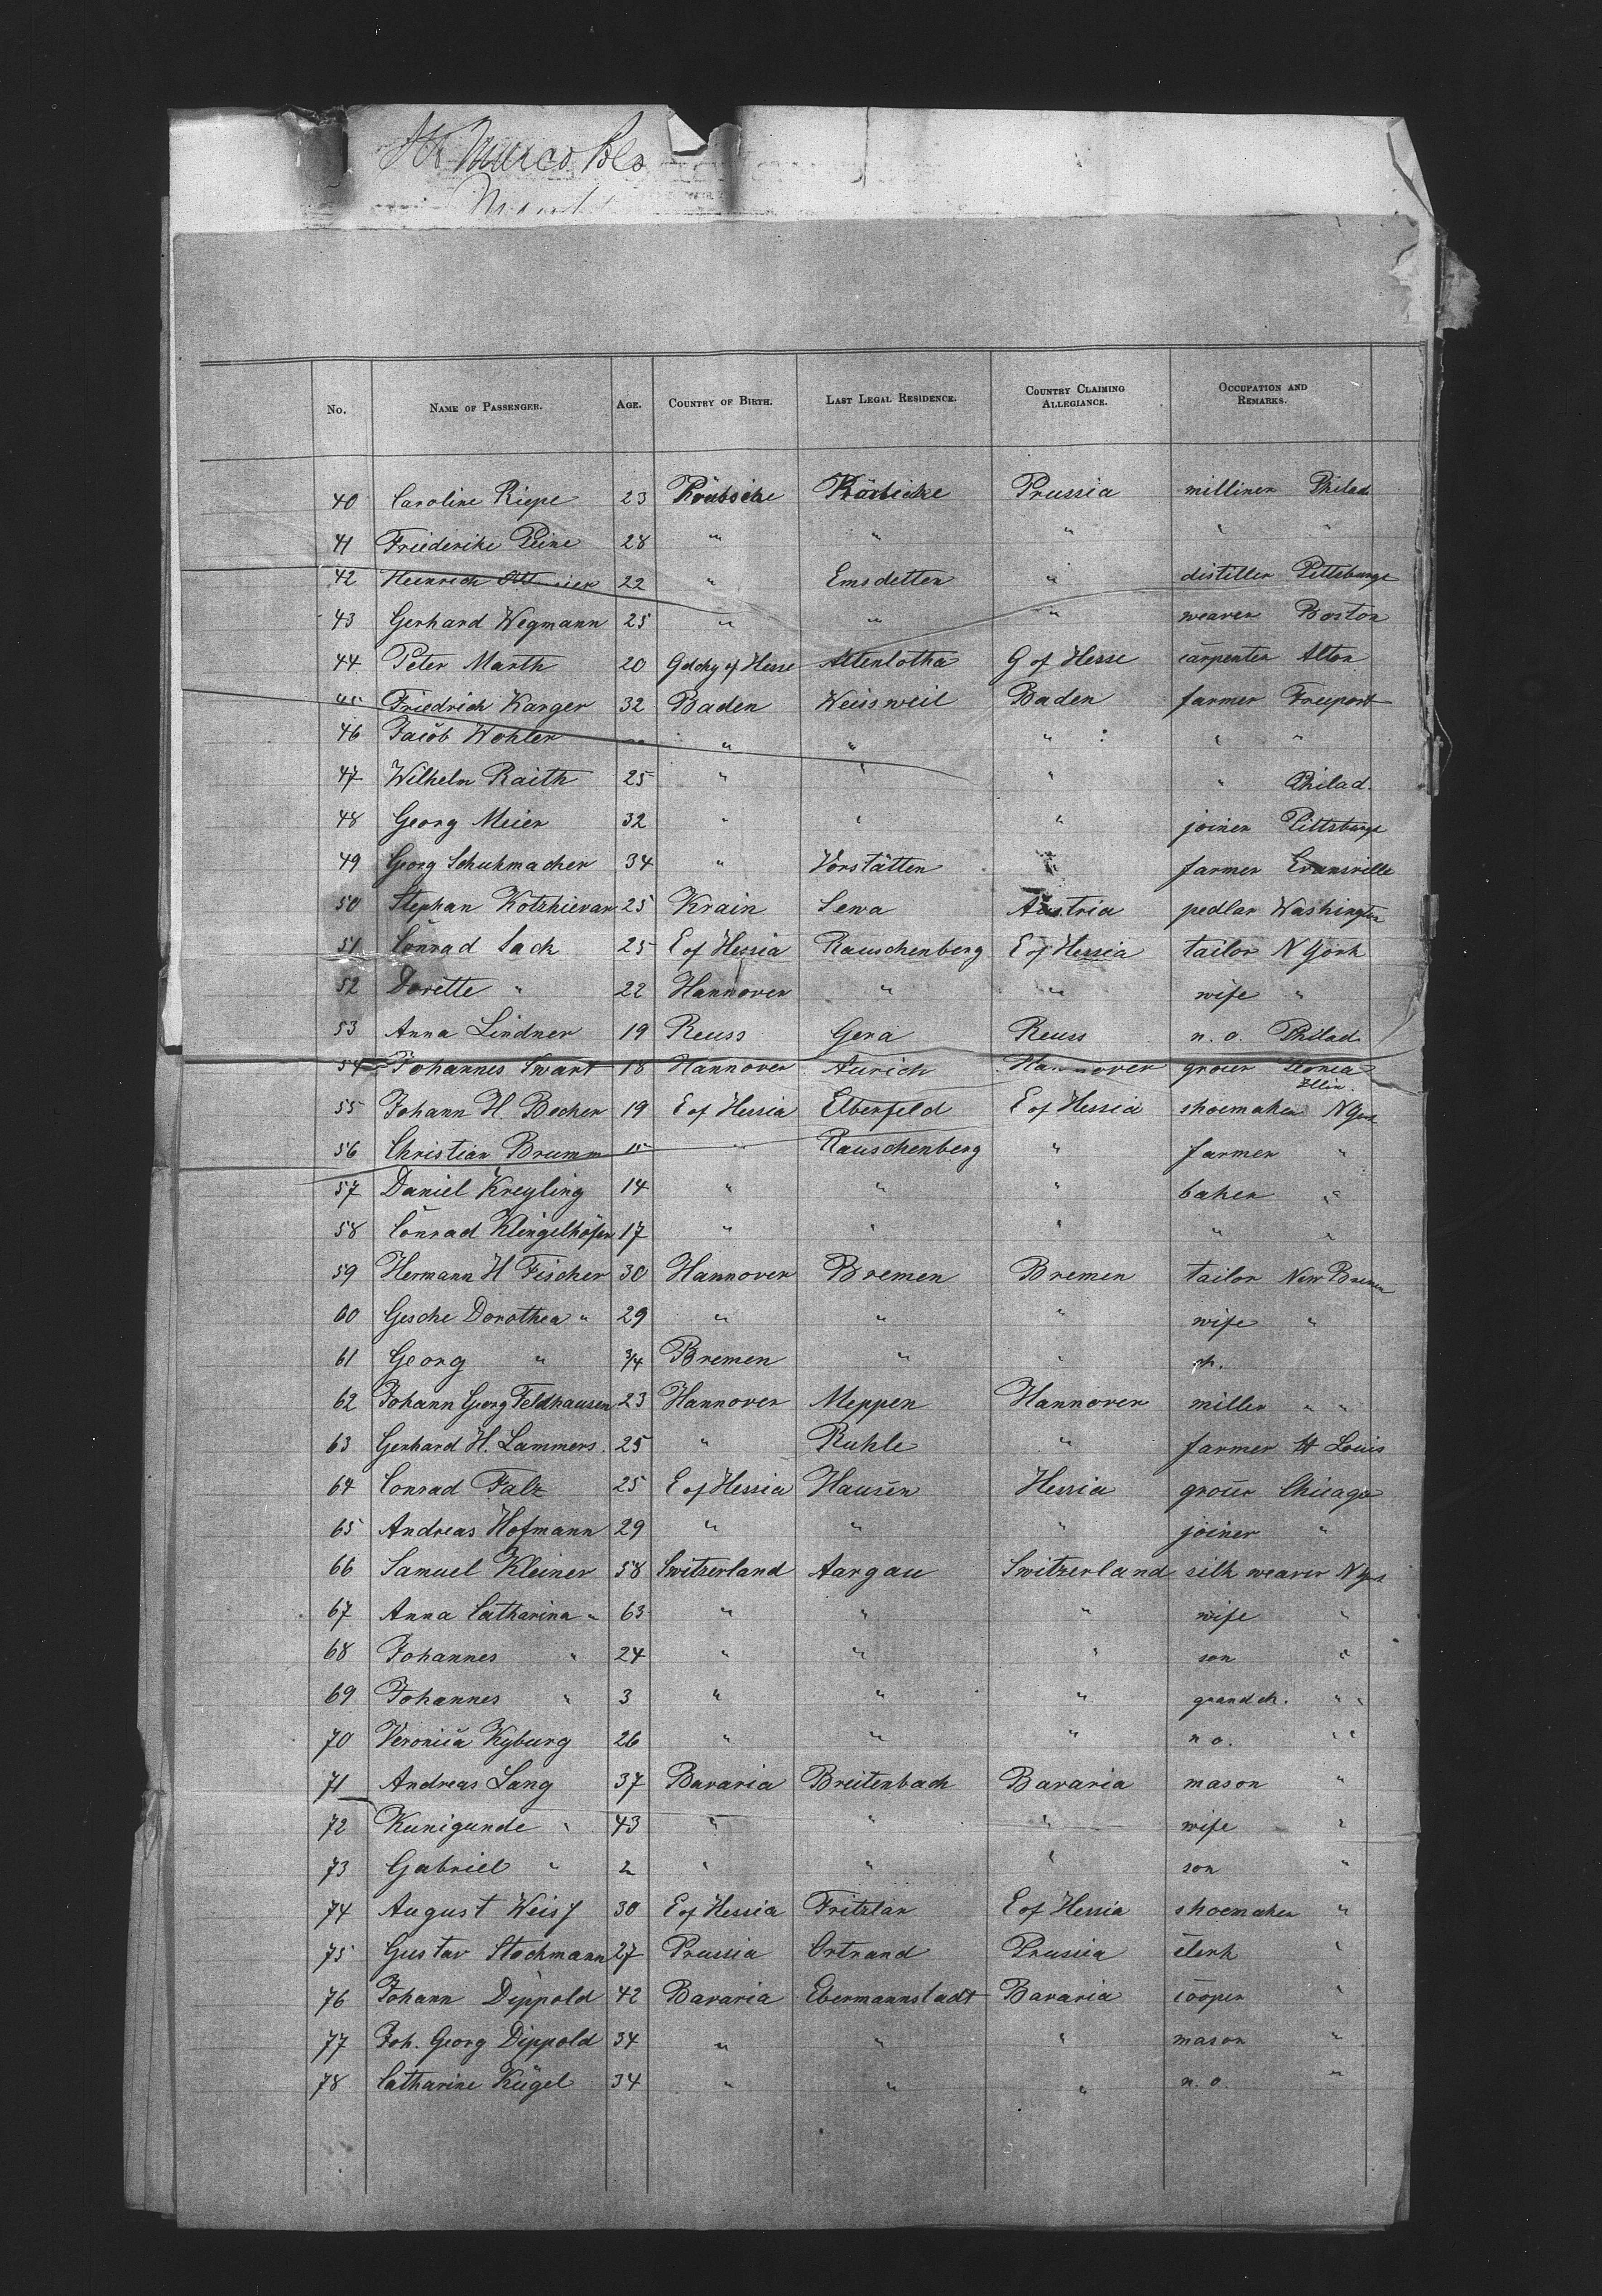 No. NAME OF PASSENGER. AGE. COUNTRY OF BIRTH. LAST LEGAL RESIDENCE. COUNTRY CLAIMING ALLEGIANCE. OCCUPATION AND REMARKS.
40 Caroline Riepe 23 Prussia milliner Philad
41 Friederike Peine 28 " " " " "
42 Heinrich 22 " Emsdetten " distiller Pittsburge
43 Gerhard Wegmann 25 " " " weaver Boston
44 Peter Marth 20 Gdchy of Hesse Altenlotha G of Hesse carpenter Alton
45 Friedrich Karger 32 Baden Weissweil Baden farmer Freeport
46 Jacob Wohler " " " " "
47 Wilhelm Raith 25 " " " " Philad.
48 Georg Meier 32 " " " joiner Pittsburge
49 Georg Schuhmacher 34 " Vorstätten " farmer Evansville
50 Stephan Kotzhievar 25 Krain Sewa Austria pedlar Washington
51 Conrad Sack 25 E of Hessia Rauschenberg E of Hessia tailor N York
52 Dorette " 22 Hannover " " wife "
53 Anna Lindner 19 Reuss Gera Reuss n. o. Philad
54 Johannes Swart 18 Hannover Aurich Hannover grocer Illin.
55 Johann H. Becher 19 E of Hessia Elberfeld E of Hessia shoemaker N York
56 Christian Brumm 15 " Rauschenberg " farmer "
57 Daniel Kreyling 14 " " " baker "
58 Conrad Klingelhöfer 17 " " " " "
59 Hermann H Fischer 30 Hannover Bremen Bremen tailor New Bremen
60 Gesche Dorothea " 29 " " " wife "
61 Georg " 3/4 Bremen " " ch.
62 Johann Georg Feldhausen 23 Hannover Meppen Hannover miller " "
63 Gerhard H. Lammers. 25 " Ruhle " farmer St Louis
64 Conrad Falz 25 E of Hessia Hausen Hessia grocer Chicago
65 Andreas Hofmann 29 " " " joiner "
66 Samuel Kleiner 58 Switzerland Aargau Switzerland silk weaver N York
67 Anna Catharina " 63 " " " wife "
68 Johannes " 24 " " " son "
69 Johannes " 3 " " " grand ch. " "
70 Veronica Kyburg 26 " " " n o. " "
71 Andreas Lang 37 Bavaria Breitenbach Bavaria mason "
72 Kunigunde " 43 " " " wife "
73 Gabriel " 2 " " " son "
74 August Weiss 30 E of Hessia Fritzlar E of Hessia shoemaker "
75 Gustav Stockmann 27 Prussia Ortrand Prussia clerk "
76 Johann Dippold 42 Bavaria Ebermannstadt Bavaria cooper "
77 Joh. Georg Dippold 34 " " " mason "
78 Catharine Kügel 34 " " " n. o. "